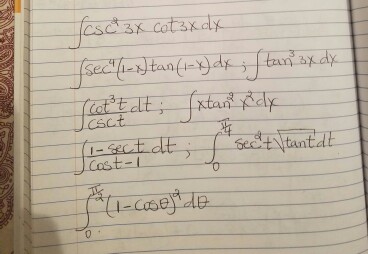 ∫csc² 3x cot3x dx
∫sec⁴(1-x)tan(1-x)dx ; ∫tan³ 3x dx
∫cot³t/csct dt ; ∫xtan² x² dx
∫1-sect/cost-1 dt ; ∫₀^(π/4) sec²t √tant dt
∫₀^(π/2) (1-cosθ)² dθ